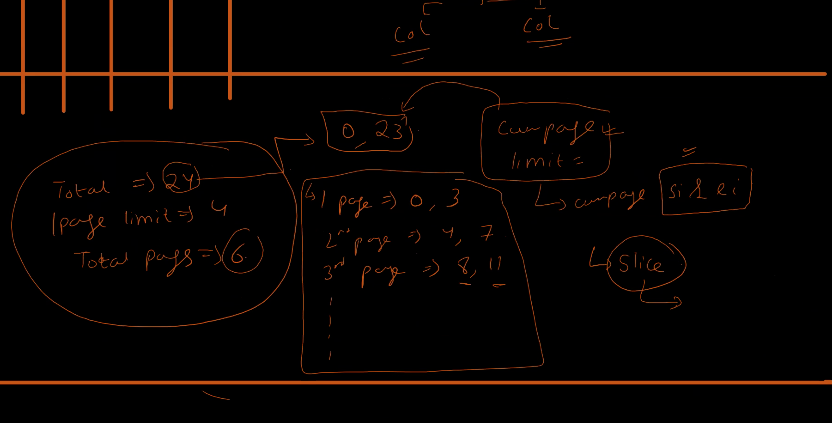 Col
Col
0, 23
Currpage
limit =
Total => 24
1page limit => 4
Total pages => 6
1 page => 0, 3
2nd page => 4, 7
3rd page => 8, 11
currpage
si & ei
Slice